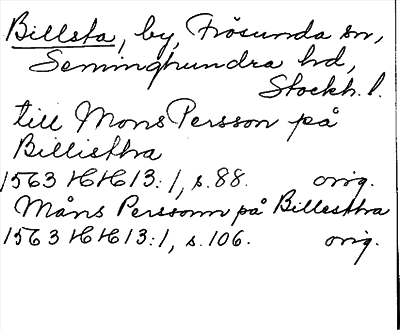 Billsta, by, Frösunda sn,
Seminghundra hd,
Stockh. l.
till Mons Persson på
Billisthra
1563 HH 13:1, s. 88. orig.
Måns Personn på Billesthra
1563 HH 13:1, s. 106. orig.